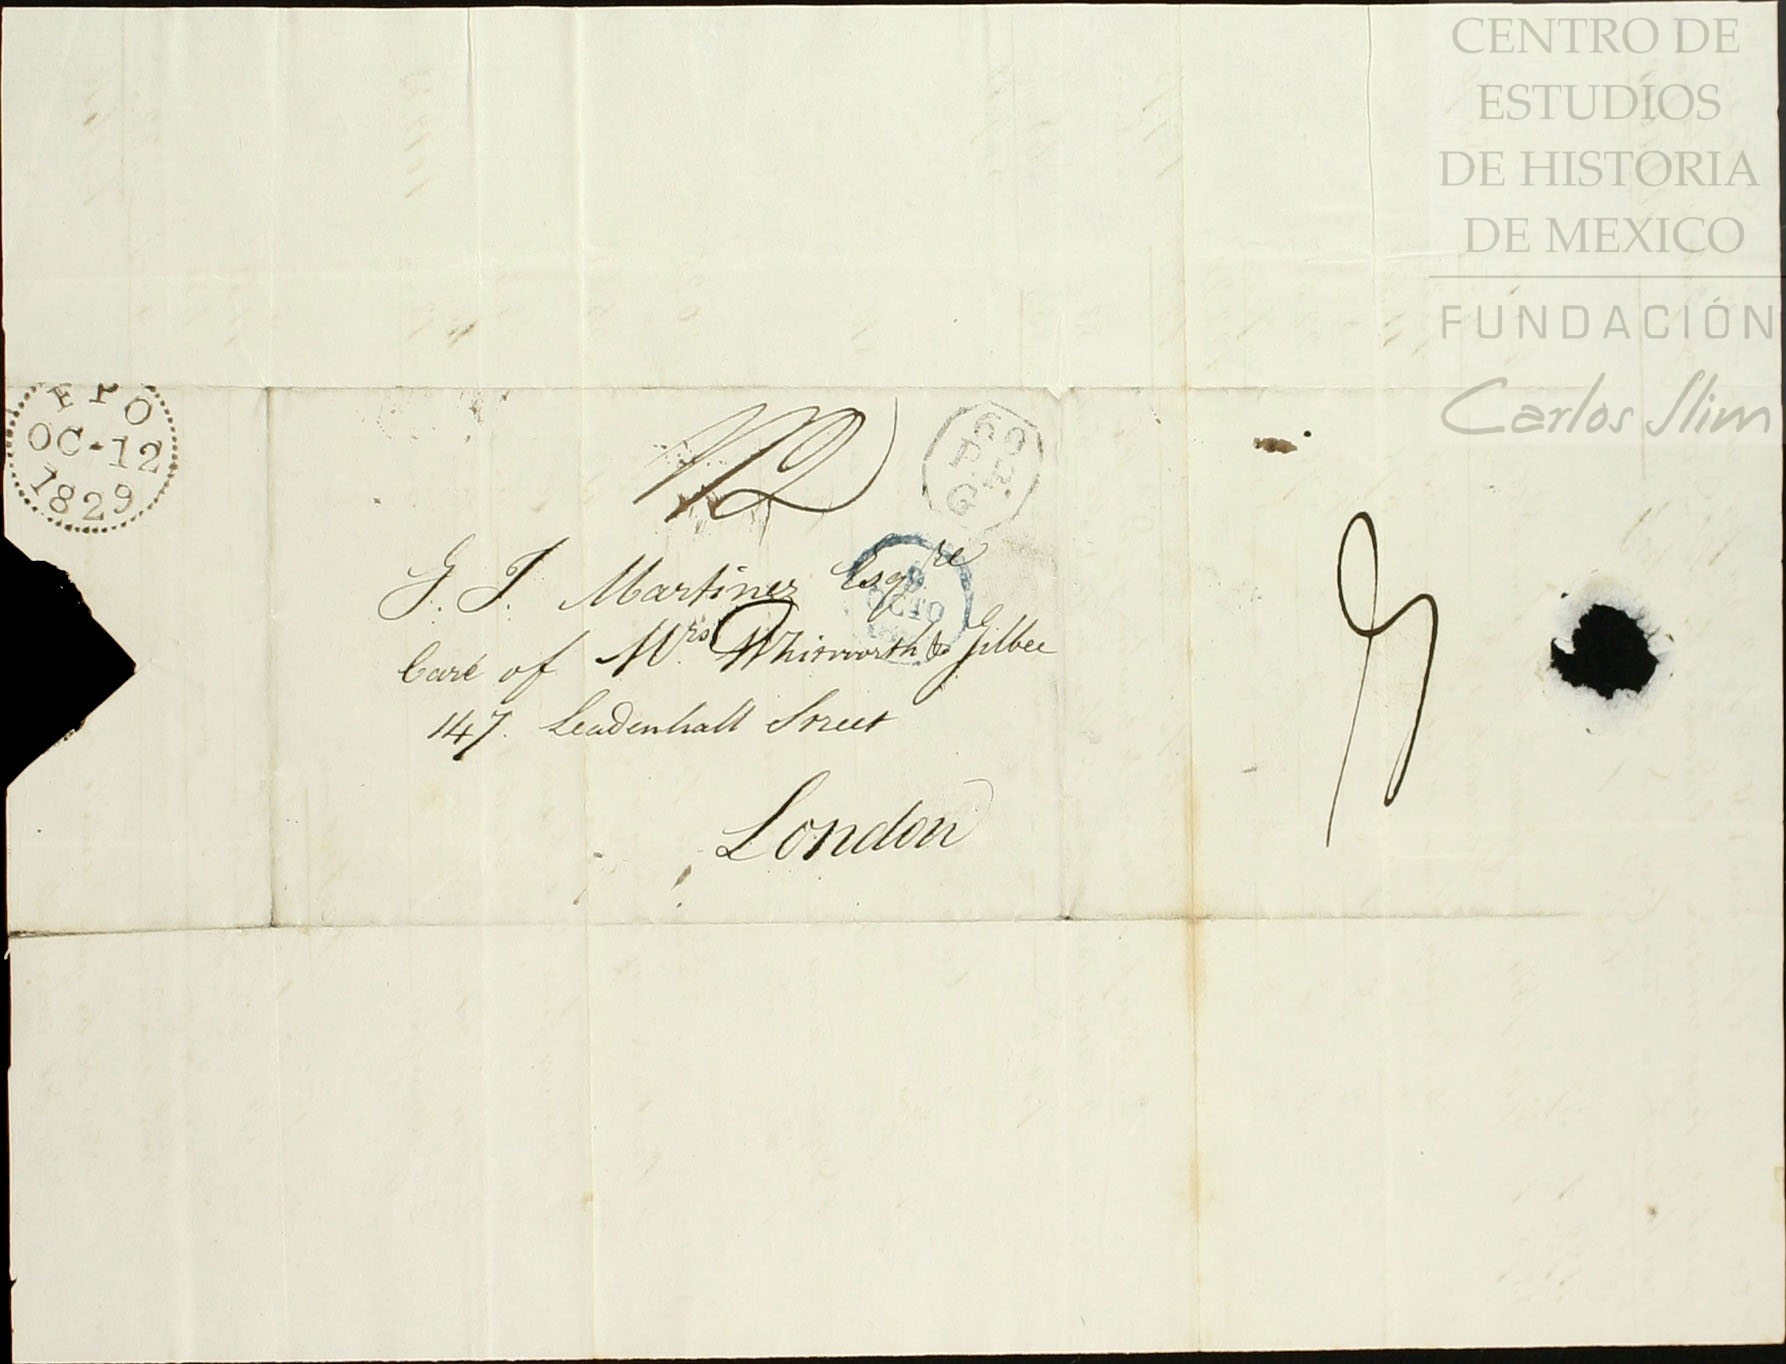 CENTRO DE
ESTUDIOS
DE HISTORIA
DE MEXICO
FUNDACIÓN
Carlos Slim
FPO
OC-12
1829
G. J. Martinez Esqre
Care of Mrs Whitworth & Gilbee
147. Leadenhall Street
London
OCTO